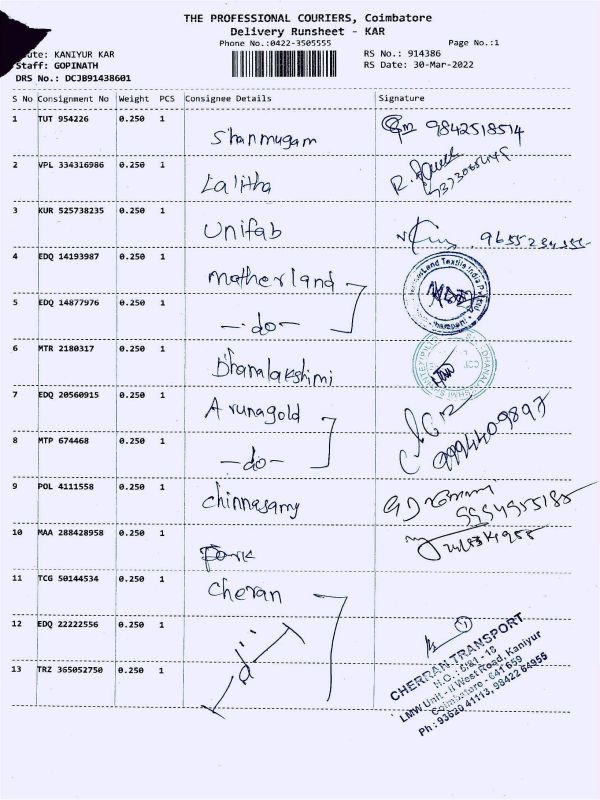 THE PROFESSIONAL COURIERS, Coimbatore
Delivery Runsheet - KAR
Phone No.:0422-3505555 Page No.:1
ute: KANIYUR KAR RS No.: 914386
Staff: GOPINATH RS Date: 30-Mar-2022
DRS No.: DCJB91438601
S No Consignment No Weight PCS Consignee Details Signature
1 TUT 954226 0.250 1 Shanmugam 9842518514
2 VPL 334316986 0.250 1 Lalitha
3 KUR 525738235 0.250 1 Unifab
4 EDQ 14193987 0.250 1 Motherland
5 EDQ 14877976 0.250 1 -do-
6 MTR 2180317 0.250 1 Dhanalakshimi
7 EDQ 20560915 0.250 1 Arunagold
8 MTP 674468 0.250 1 -do- 9994409897
9 POL 4111558 0.250 1 Chinnasamy
10 MAA 288428958 0.250 1
11 TCG 50144534 0.250 1 Cheran
12 EDQ 22222556 0.250 1
13 TRZ 365052750 0.250 1
CHERRAN TRANSPORT
H.O.: 6/81 - 18
LMW Unit - II West Road, Kaniyur
Coimbatore - 641 659
Ph : 93620 41113, 98422 64955